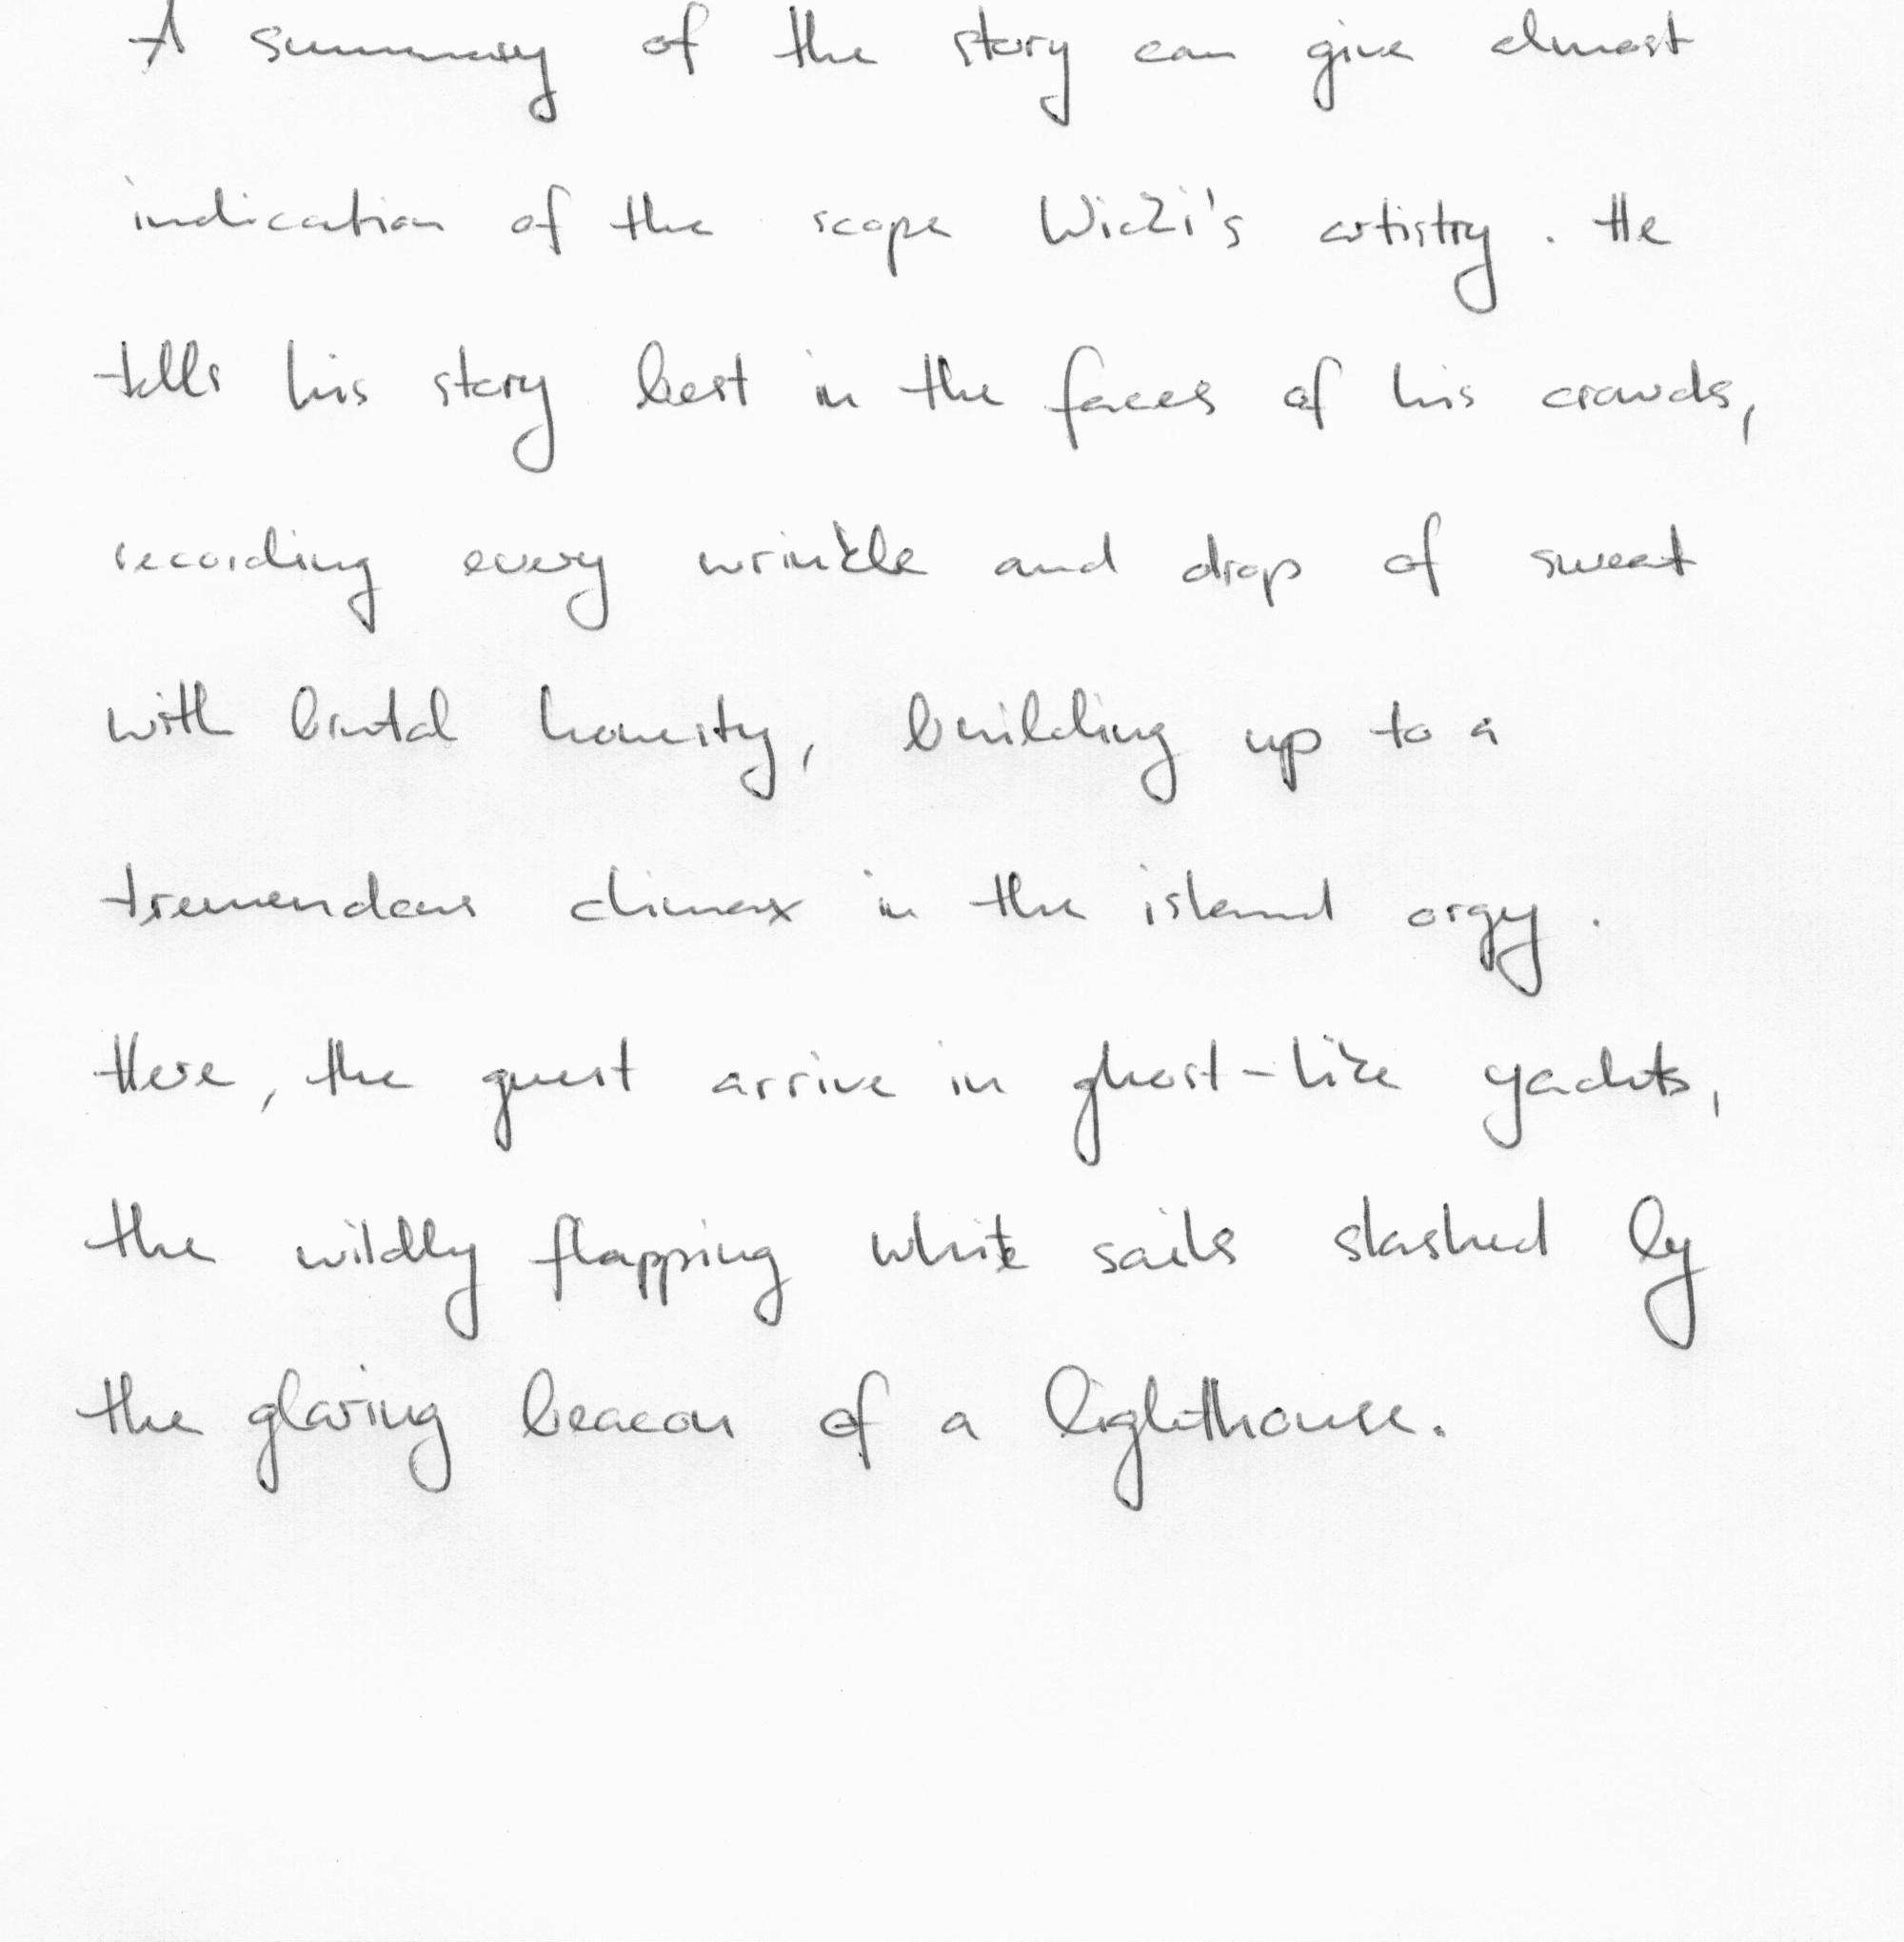 A summary of the story can give almost
indication of the scope Wicki's artistry. He
tells his story best in the faces of his crowds,
recording every wrinkle and drop of sweat
with brutal honesty, building up to a
tremendous climax in the island orgy.
Here, the guest arrive in ghost-like yachts,
the wildly flapping white sails slashed by
the glaring beacon of a lighthouse.